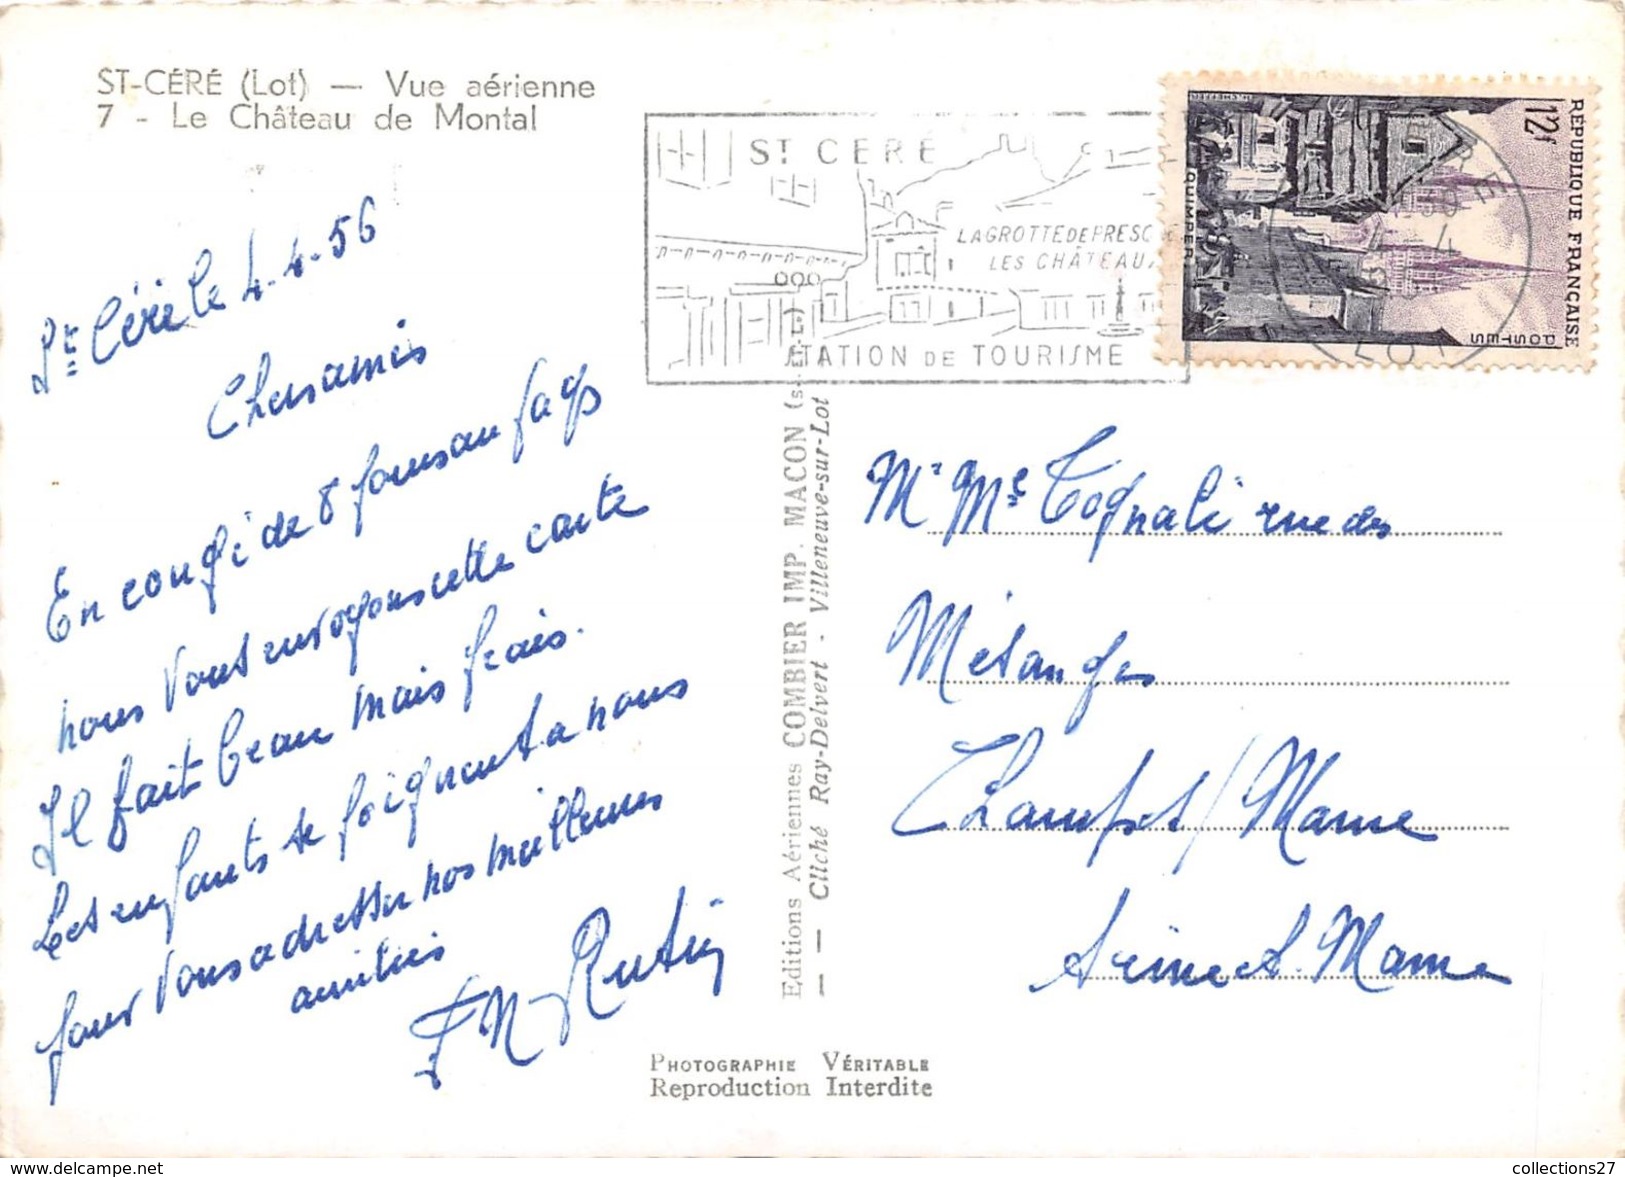 ST-CÉRÉ (Lot) — Vue aérienne
7 - Le Château de Montal
St Céré le 4-4-56
Chers amis
En congé de 8 jours au pays
nous vous envoyons cette carte
Il fait beau mais frais.
Les enfants se joignent a nous
pour vous adresser nos meilleures
amitiés
ST CÉRÉ
LA GROTTE DE PRESC
LES CHÂTEAU
STATION DE TOURISME
RÉPUBLIQUE FRANÇAISE
12F
POSTES
QUIMPER
LOT
Editions Aériennes COMBIER IMP. MACON (S.-&-L.)
— — Cliché Ray-Delvert - Villeneuve-sur-Lot
Mr Me Tognali rue des
Mésanges
Champs s/ Marne
Seine et Marne
PHOTOGRAPHIE VÉRITABLE
Reproduction Interdite
collections27